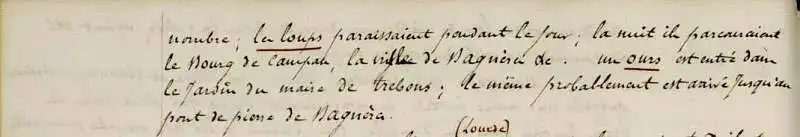 nombre; les loups paraissaient pendant le jour; la nuit ils parcouraient
le Bourg de Campan, la ville de Bagnères de . un ours est entré dans
le Jardin du maire de trebons; le même probablement est arrivé Jusqu'au
pont de pierre de Bagnères.
(Louese)